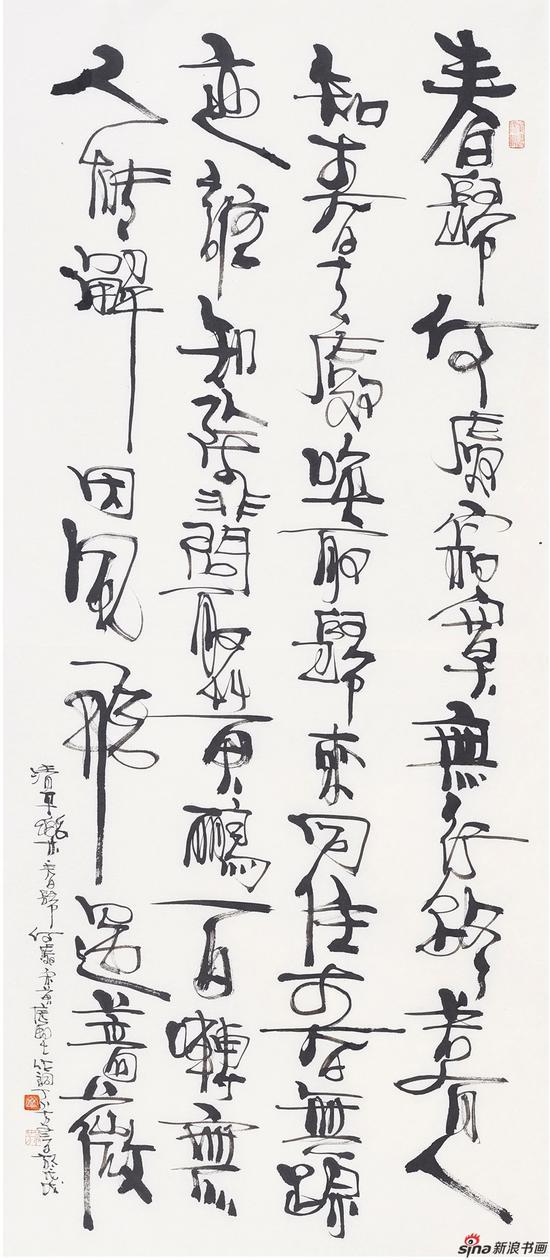 春歸何處寂寞無行路若有人
知春去處喚取歸來同住春無踪
迹誰知除非問取黃鸝百囀無
人能解因風飛過薔薇
清平樂春歸何處宋黃庭堅
sina新浪书画